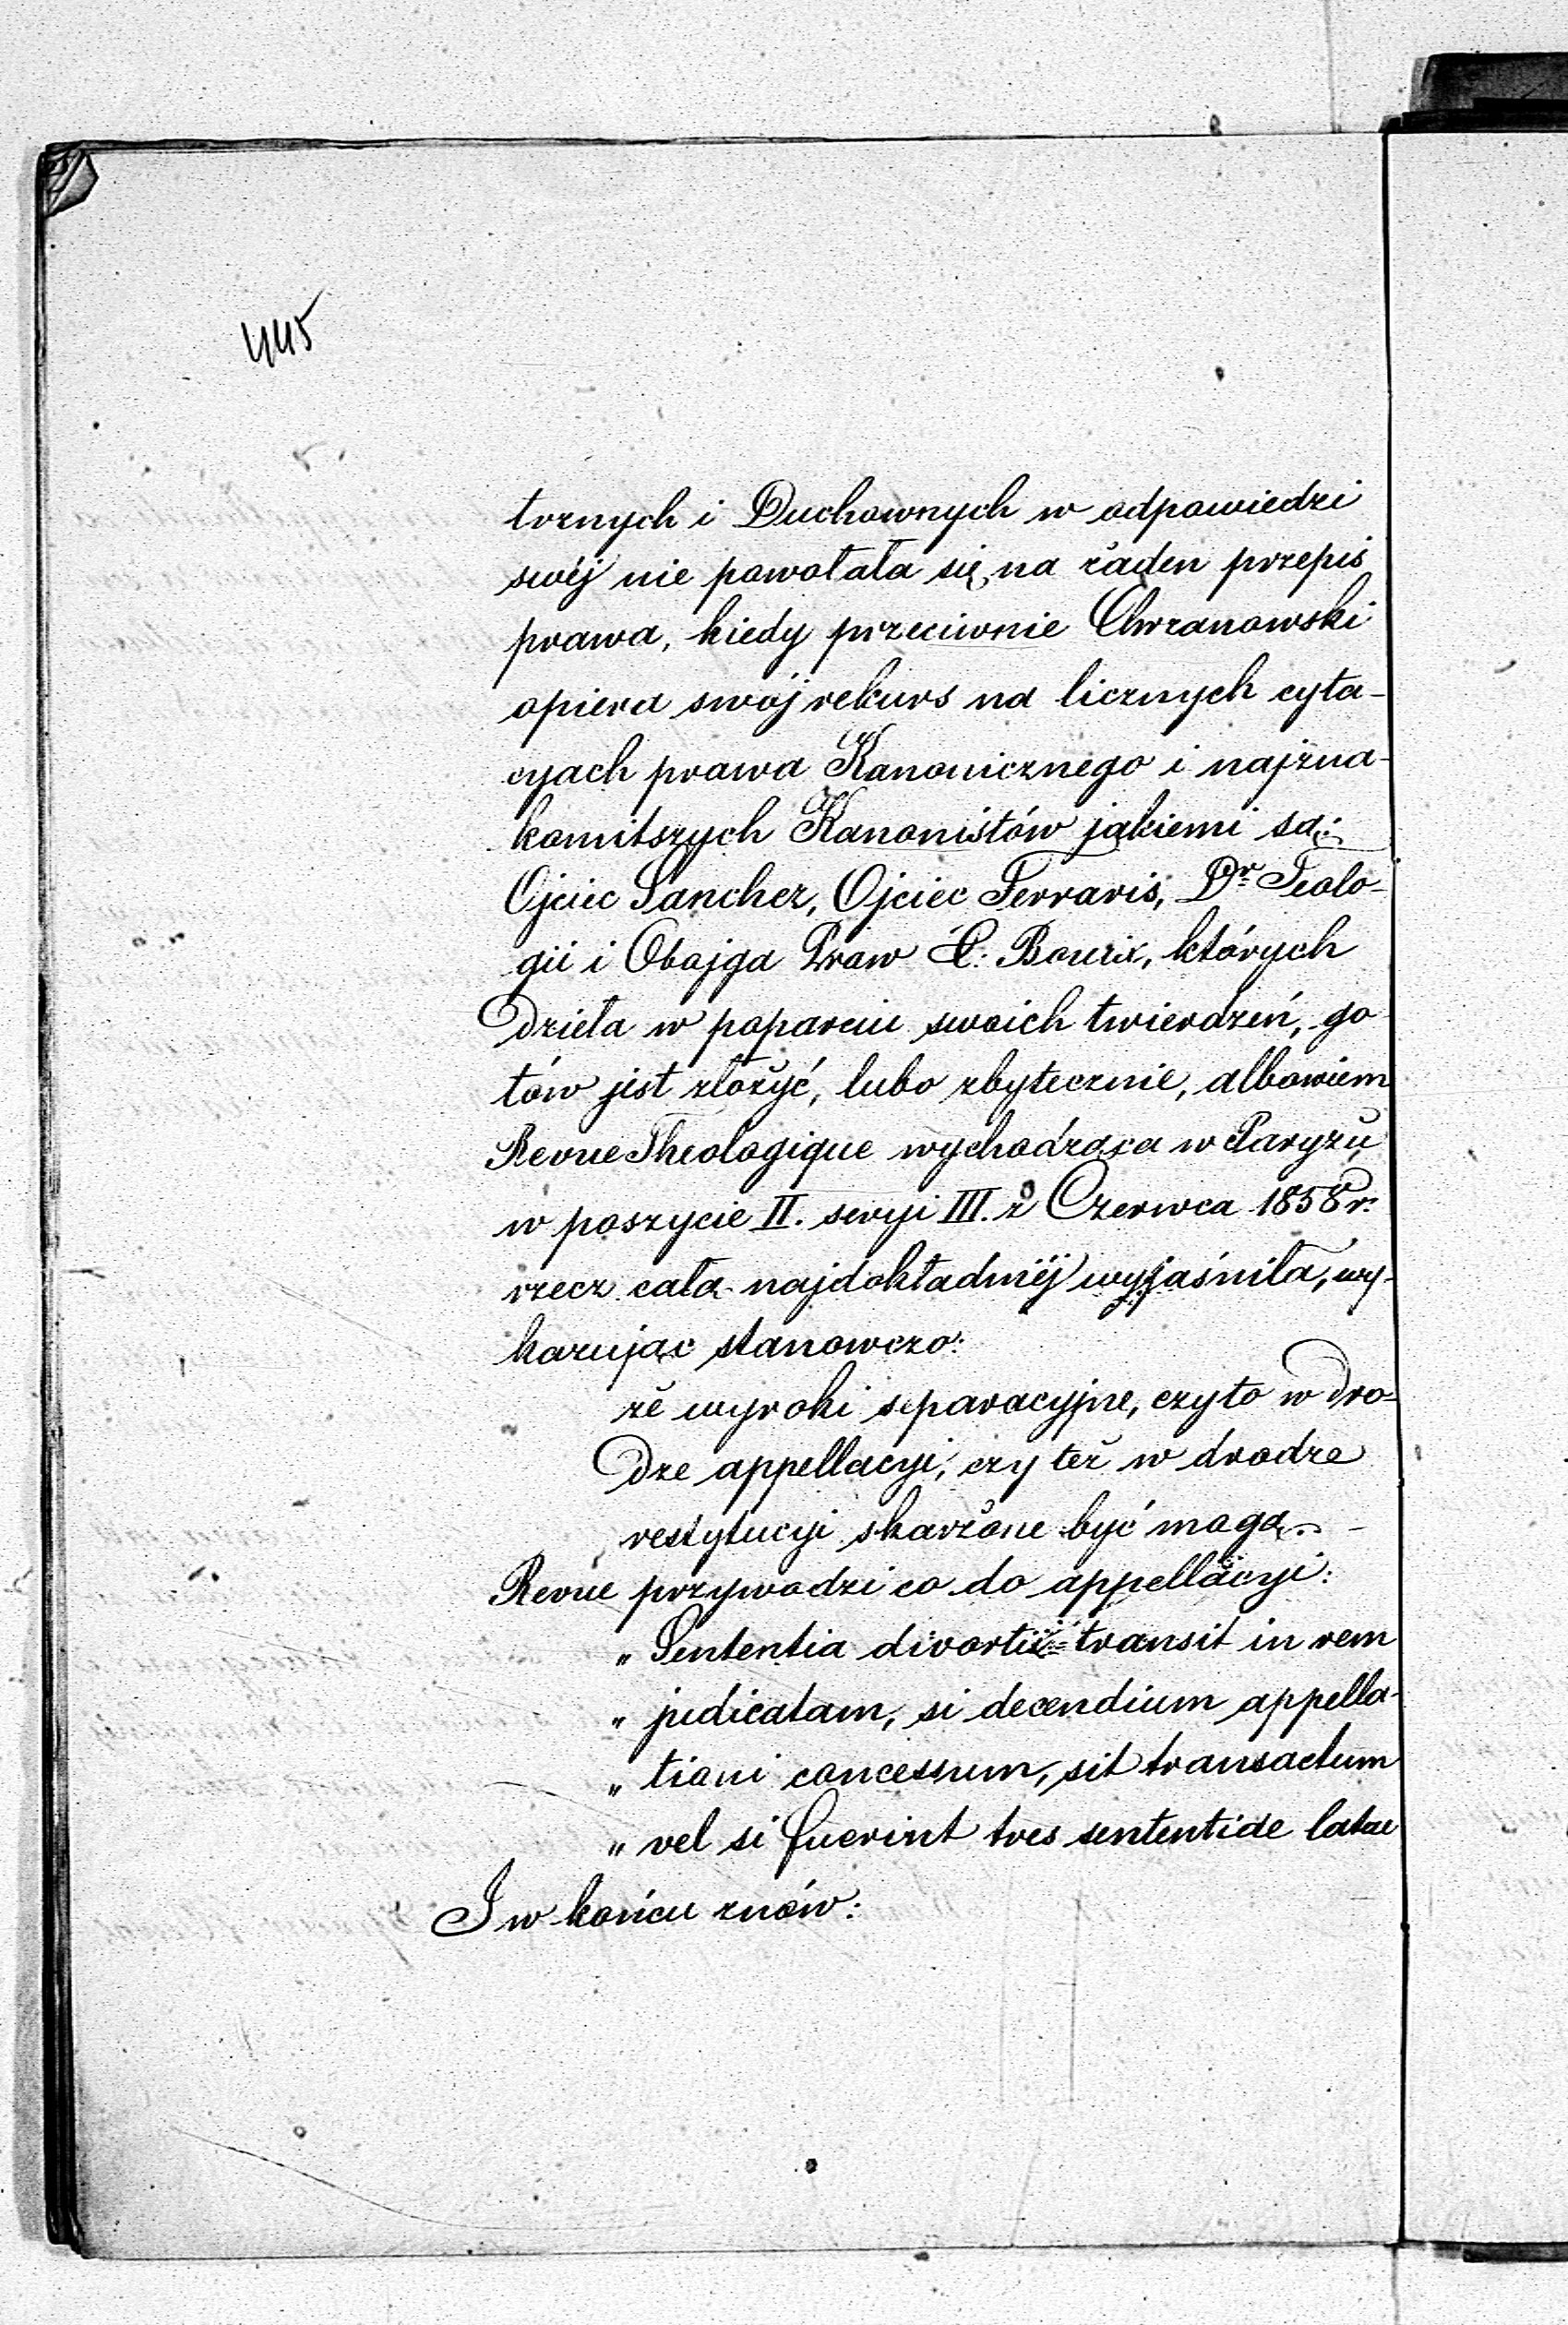 445
trznych i Duchownych w odpowiedzi
swéj nie powołała się na żaden przepis
prawa, kiedy przeciwnie Chrzanowski
opiera swój rekurs na licznych cyta-
cyach prawa Kanonicznego i najzna-
komitszych Kanonistów jakiemi są:
Ojciec Sanchez, Ojciec Ferraris, Dr Teolo-
gii i Obojga Praw Bouix, których
dzieła w poparciu swoich twierdzeń, go
tów jest złożyć, lubo zbytecznie, albowiem
Revue Theologique wychodząca w Paryżu
w poszycie II. seryi III. z Czerwca 1858 r.
rzecz całą najdokładniéj wyjaśniła, wy-
kazując stanowczo:
że wyroki separacyjne, czyto w dro-
dze appellacyi, czy też w drodze
restytucyi skarżone być mogą. –
Revue przywodzi co do appellacyi:
„ Sententia divortii transit in rem
„ judicatam, si decendium appella-
„ tioni concessum, sit transactum
„ vel si fuerint tres sententiae latae
I w końcu znów: